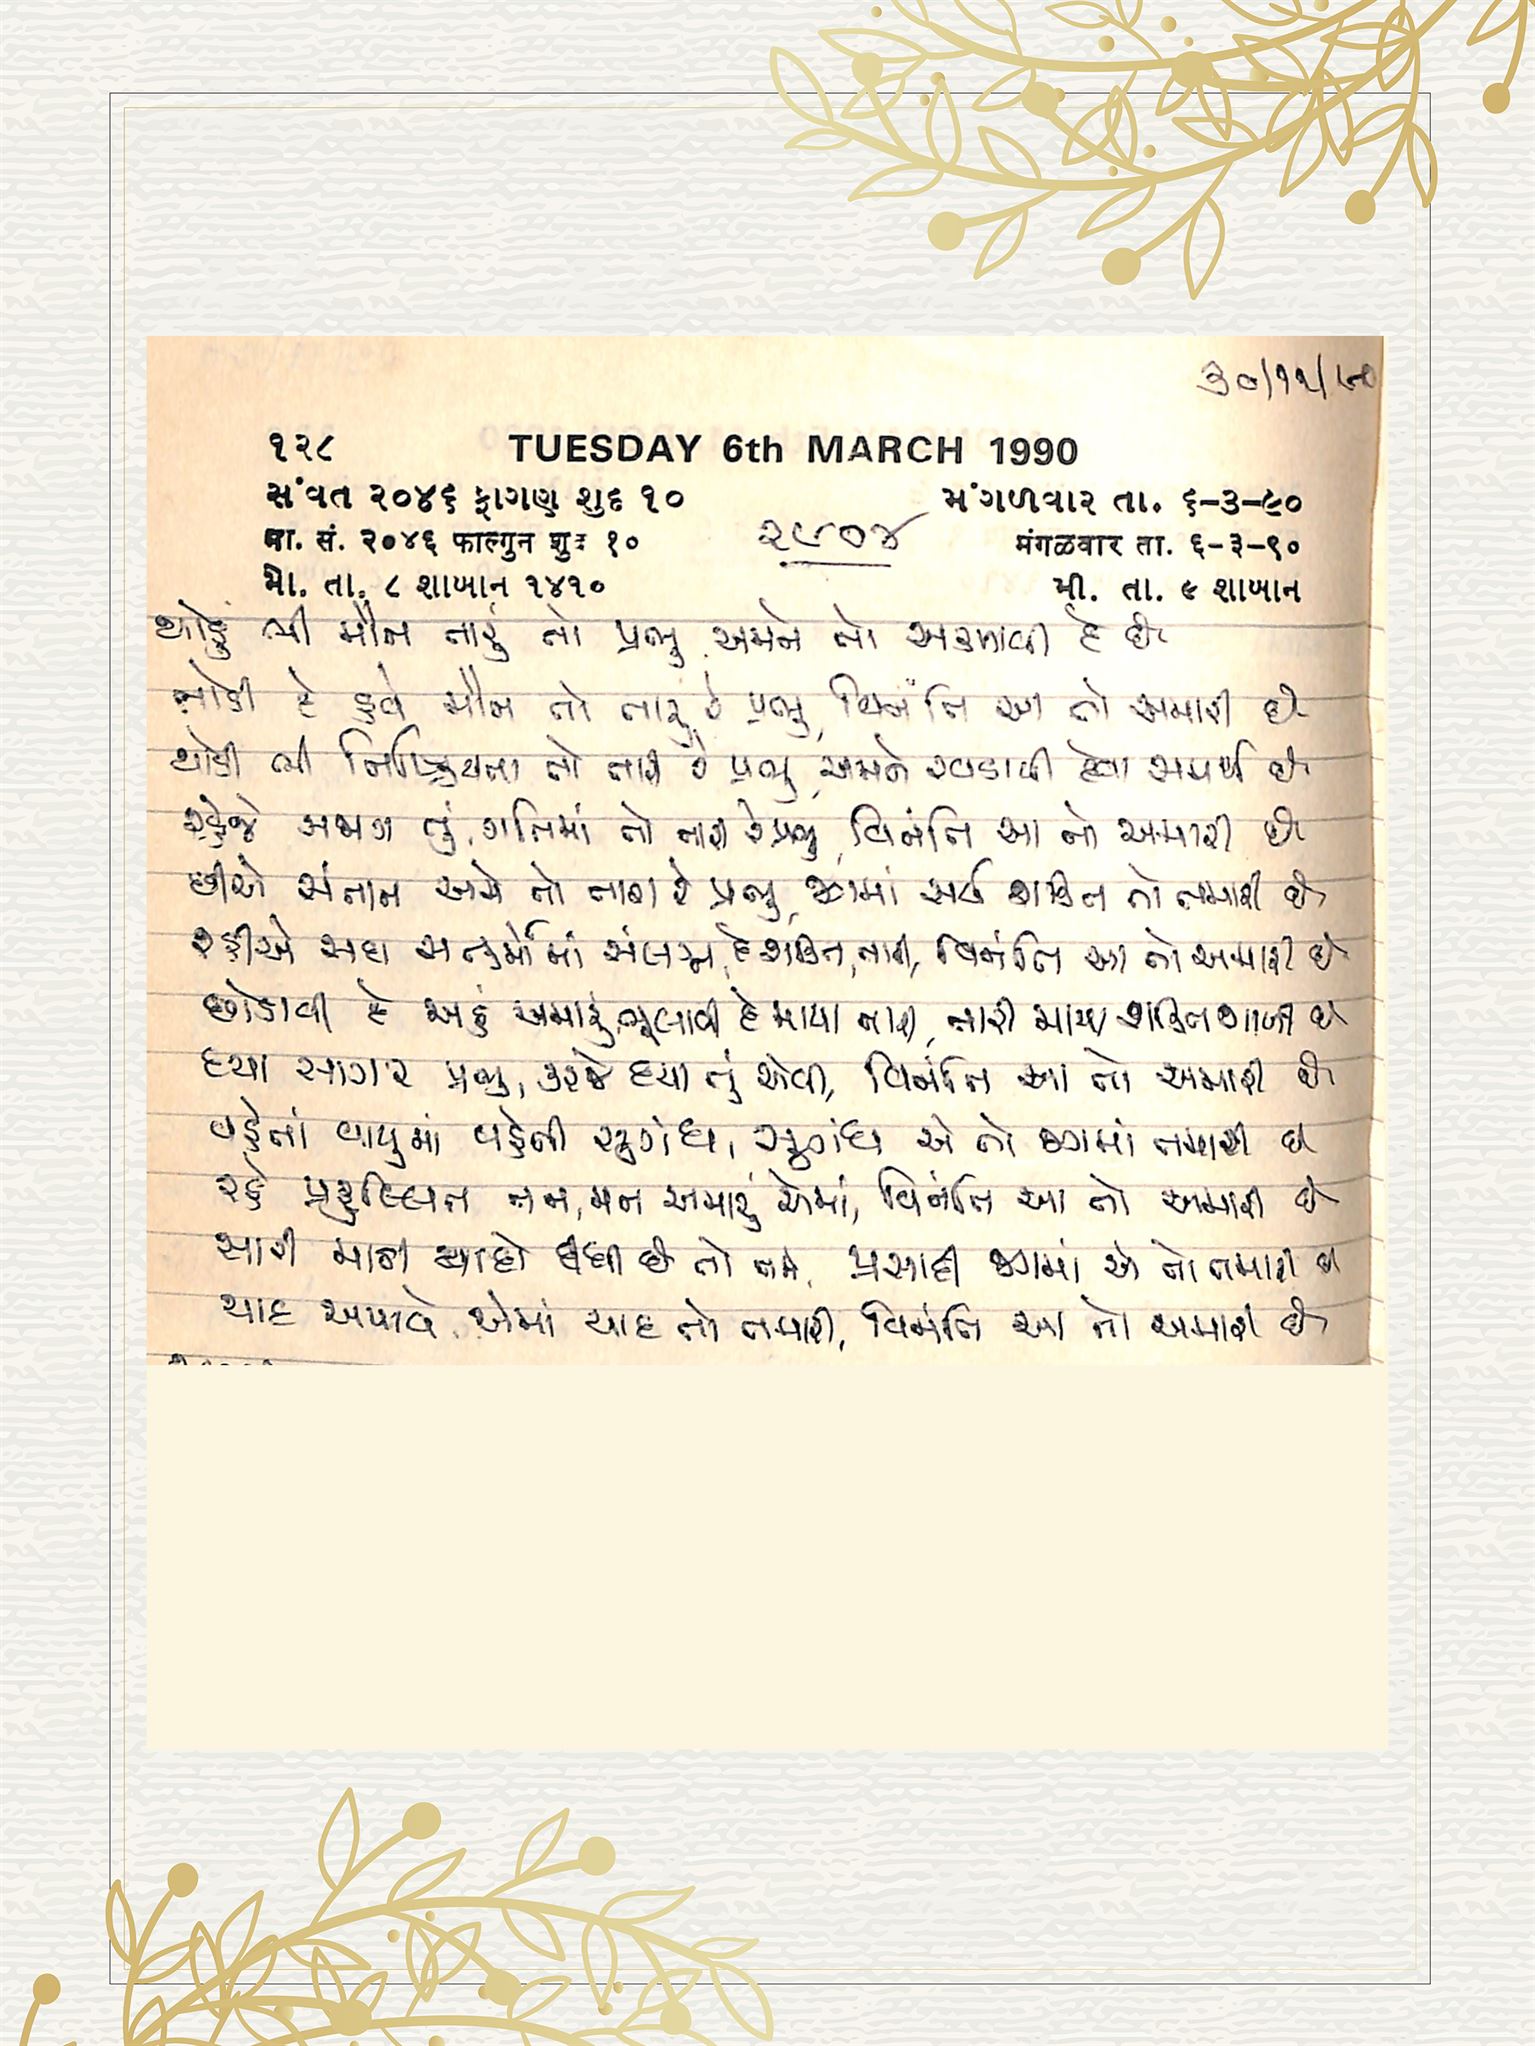 ૩૦/૧૨/૯૦
૧૨૮ TUESDAY 6th MARCH 1990
સંવત ૨૦૪૬ ફાગણ શુદ ૧૦ મંગળવાર તા. ૬-૩-૯૦
૨૯૦૪
વા. સં. ૨૦૪૬ फाल्गुन शुद १० मंगळवार ता. ६-३-९०
પા. તા. ૮ શાબાન ૧૪૧૦ મી. તા. ૯ શાબાન
થોડું ભી મૌન તારું તો પ્રભુ અમને તો અકળાવી દે છે
તોડી દે હવે મૌન તો તારું રે પ્રભુ, વિનંતિ આ તો અમારી છે
થોડી ભી નિષ્ક્રિયતા તો તારી રે પ્રભુ, અમને રખડાવી દેવા સમર્થ છે
રહેજે સજાગ તું, ગતિમાં તો તારી રે પ્રભુ, વિનંતિ આ તો અમારી છે
છીએ સંતાન અમે તો તારા રે પ્રભુ, જગમાં સર્વ શક્તિ તો તમારી છે
રહીએ સદા સત્કર્મોમાં સંલગ્ન, દે શક્તિ તારી, વિનંતિ આ તો અમારી છે
છોડાવી દે અહં અમારું, ભૂલાવી દે માયા તારી, તારી માયા શક્તિશાળી છે
દયા સાગર પ્રભુ, કરજે દયા તું એવી, વિનંતિ આ તો અમારી છે
વહેતાં વાયુમાં વહેતી સુગંધ, સુગંધ એ તો જગમાં તમારી છે
રહે પ્રફુલ્લિત તન, મન અમારું એમાં, વિનંતિ આ તો અમારી છે
સારી માઠી યાદો દીધી છે તો તમે, પ્રસાદી જગમાં એ તો તમારી છે
યાદ અપાવે એમાં યાદ તો તમારી, વિનંતિ આ તો અમારી છે